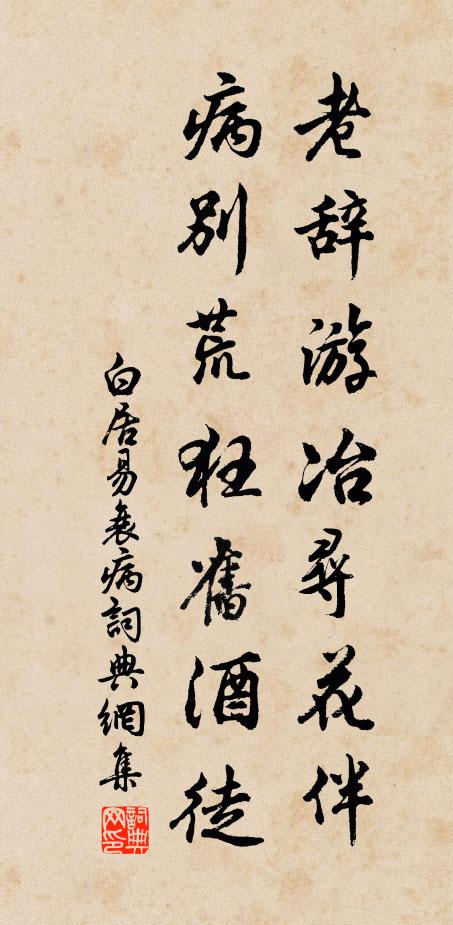 老辞游冶尋花伴
病别荒狂舊酒徒
白居易衰病詞典網集
詞典网印